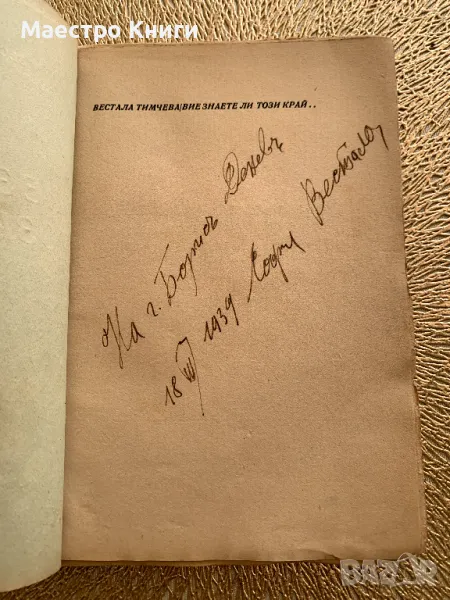 Маестро Книги
ВЕСТАЛА ТИМЧЕВА|ВИЕ ЗНАЕТЕ ЛИ ТОЗИ КРАЙ . .
На г. Борисъ Деневъ
18 III 1939 София Вестала
BAZAR.bg